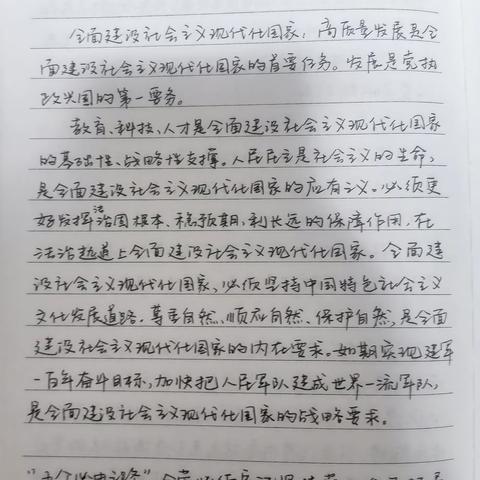 全面建设社会主义现代化国家，高质量发展是全
面建设社会主义现代化国家的首要任务。发展是党执
政兴国的第一要务。
教育、科技、人才是全面建设社会主义现代化国家
的基础性、战略性支撑。人民民主是社会主义的生命，
是全面建设社会主义现代化国家的应有之义。必须更
好发挥法治固根本、稳预期、利长远的保障作用，在
法治轨道上全面建设社会主义现代化国家。全面建
设社会主义现代化国家，必须坚持中国特色社会主义
文化发展道路。尊重自然、顺应自然、保护自然，是全面
建设社会主义现代化国家的内在要求。如期实现建军
一百年奋斗目标，加快把人民军队建成世界一流军队，
是全面建设社会主义现代化国家的战略要求。